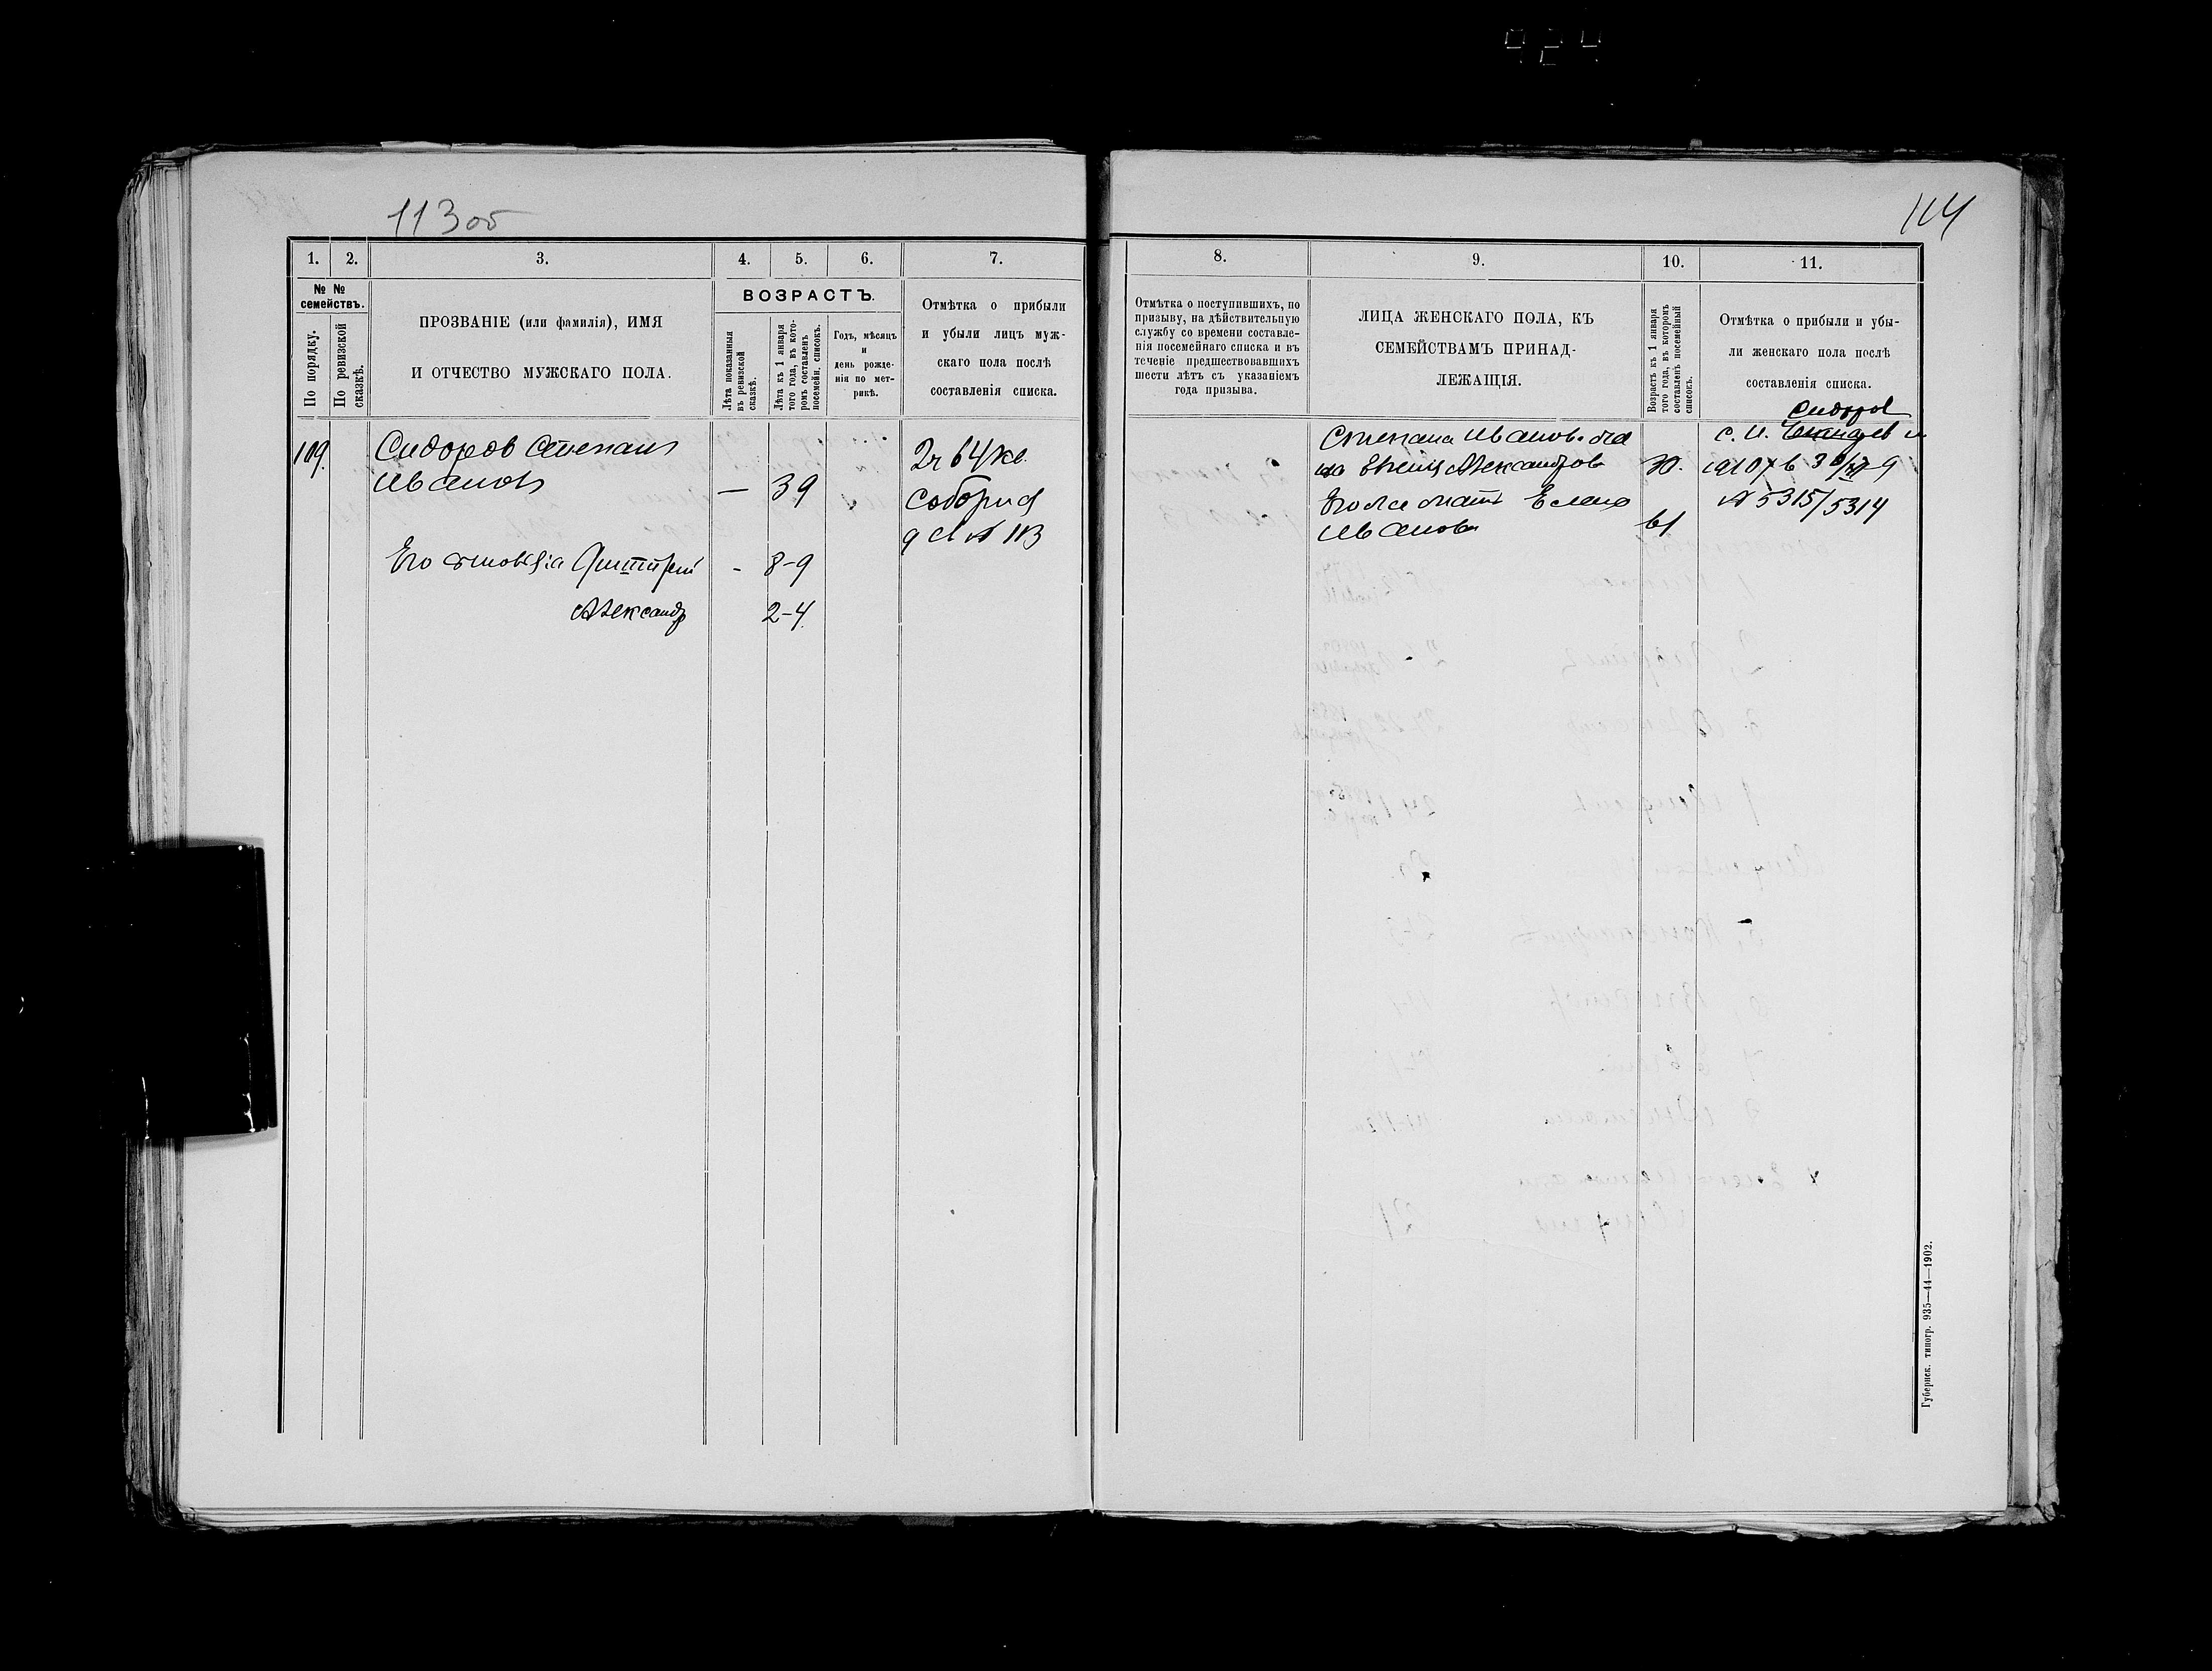 113 об
114
1. 2. 3. 4. 5. 6. 7.
№ №
семействъ.
По порядку.
По ревизской
сказкѣ.
ПРОЗВАНІЕ (или фамилія), ИМЯ
И ОТЧЕСТВО МУЖСКАГО ПОЛА.
ВОЗРАСТЪ.
Лѣта показанныя
въ ревизской
сказкѣ.
Лѣта къ 1 января
того года, въ кото-
ромъ составленъ
посемейн. списокъ.
Годъ, мѣсяцъ
и
день рожде-
нія по мет-
рикѣ.
Отмѣтка о прибыли
и убыли лицъ муж-
скаго пола послѣ
составленія списка.
109.
Сидоров Степанъ
Ивановъ
— 39
2ч 64 кв.
Соборная
д № 113
Его сыновья Дмитрій - 8-9
Александр 2-4.
8. 9. 10. 11.
Отмѣтка о поступившихъ, по
призыву, на дѣйствительную
службу со времени составле-
нія посемейнаго списка и въ
теченіе предшествовавшихъ
шести лѣтъ съ указаніемъ
года призыва.
ЛИЦА ЖЕНСКАГО ПОЛА, КЪ
СЕМЕЙСТВАМЪ ПРИНАД-
ЛЕЖАЩІЯ.
Возрастъ къ 1 января
того года, въ которомъ
составленъ посемейный
списокъ.
Отмѣтка о прибыли и убы-
ли женскаго пола послѣ
составленія списка.
Степана Иванов. же
на Александров 30.
мать Елена
Иванова 61
Сидоров
с. и.
1910
№ 5315/5314
Губернск. типогр. 935—44—1902.